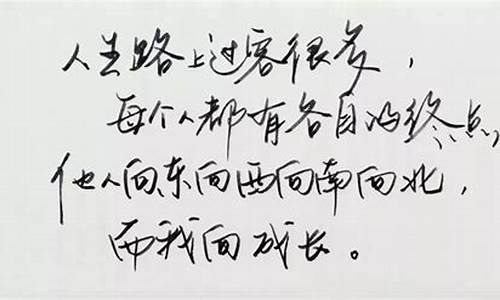 人生路上过客很多，
每个人都有各自的终点，
他人向东向西向南向北，
而我向成长。